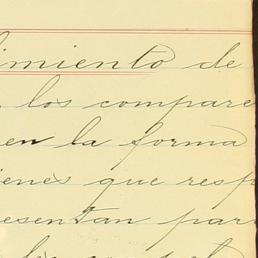 limiento de
los compare
en la forma
ienes que resp
esentan par